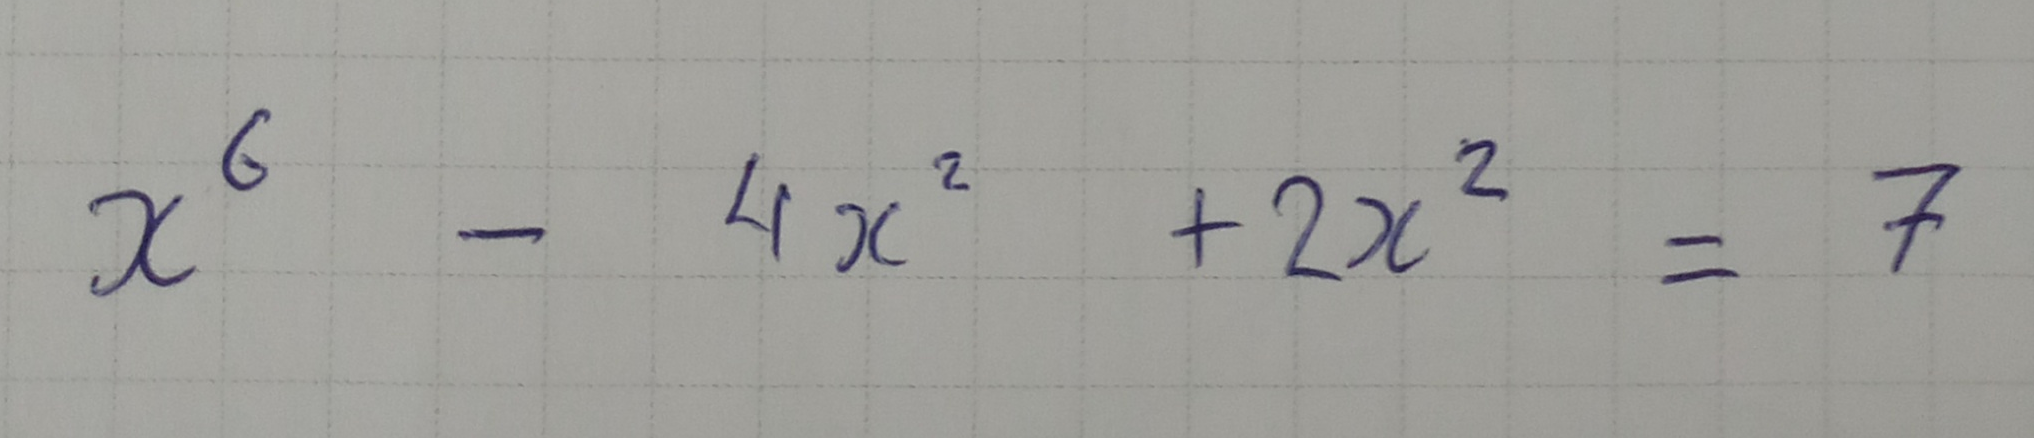 x⁶ - 4x² + 2x² = 7